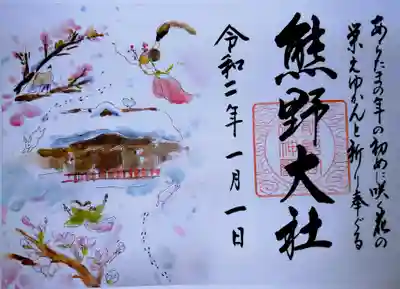 あらたまの年の初めに咲く花の
栄えゆかんと祈り奉る
熊野大社
令和二年一月一日